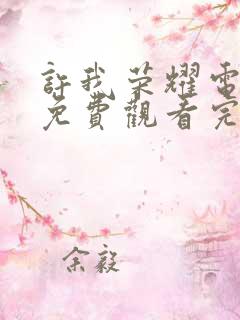 許我荣耀電
免費觀看完
余毅